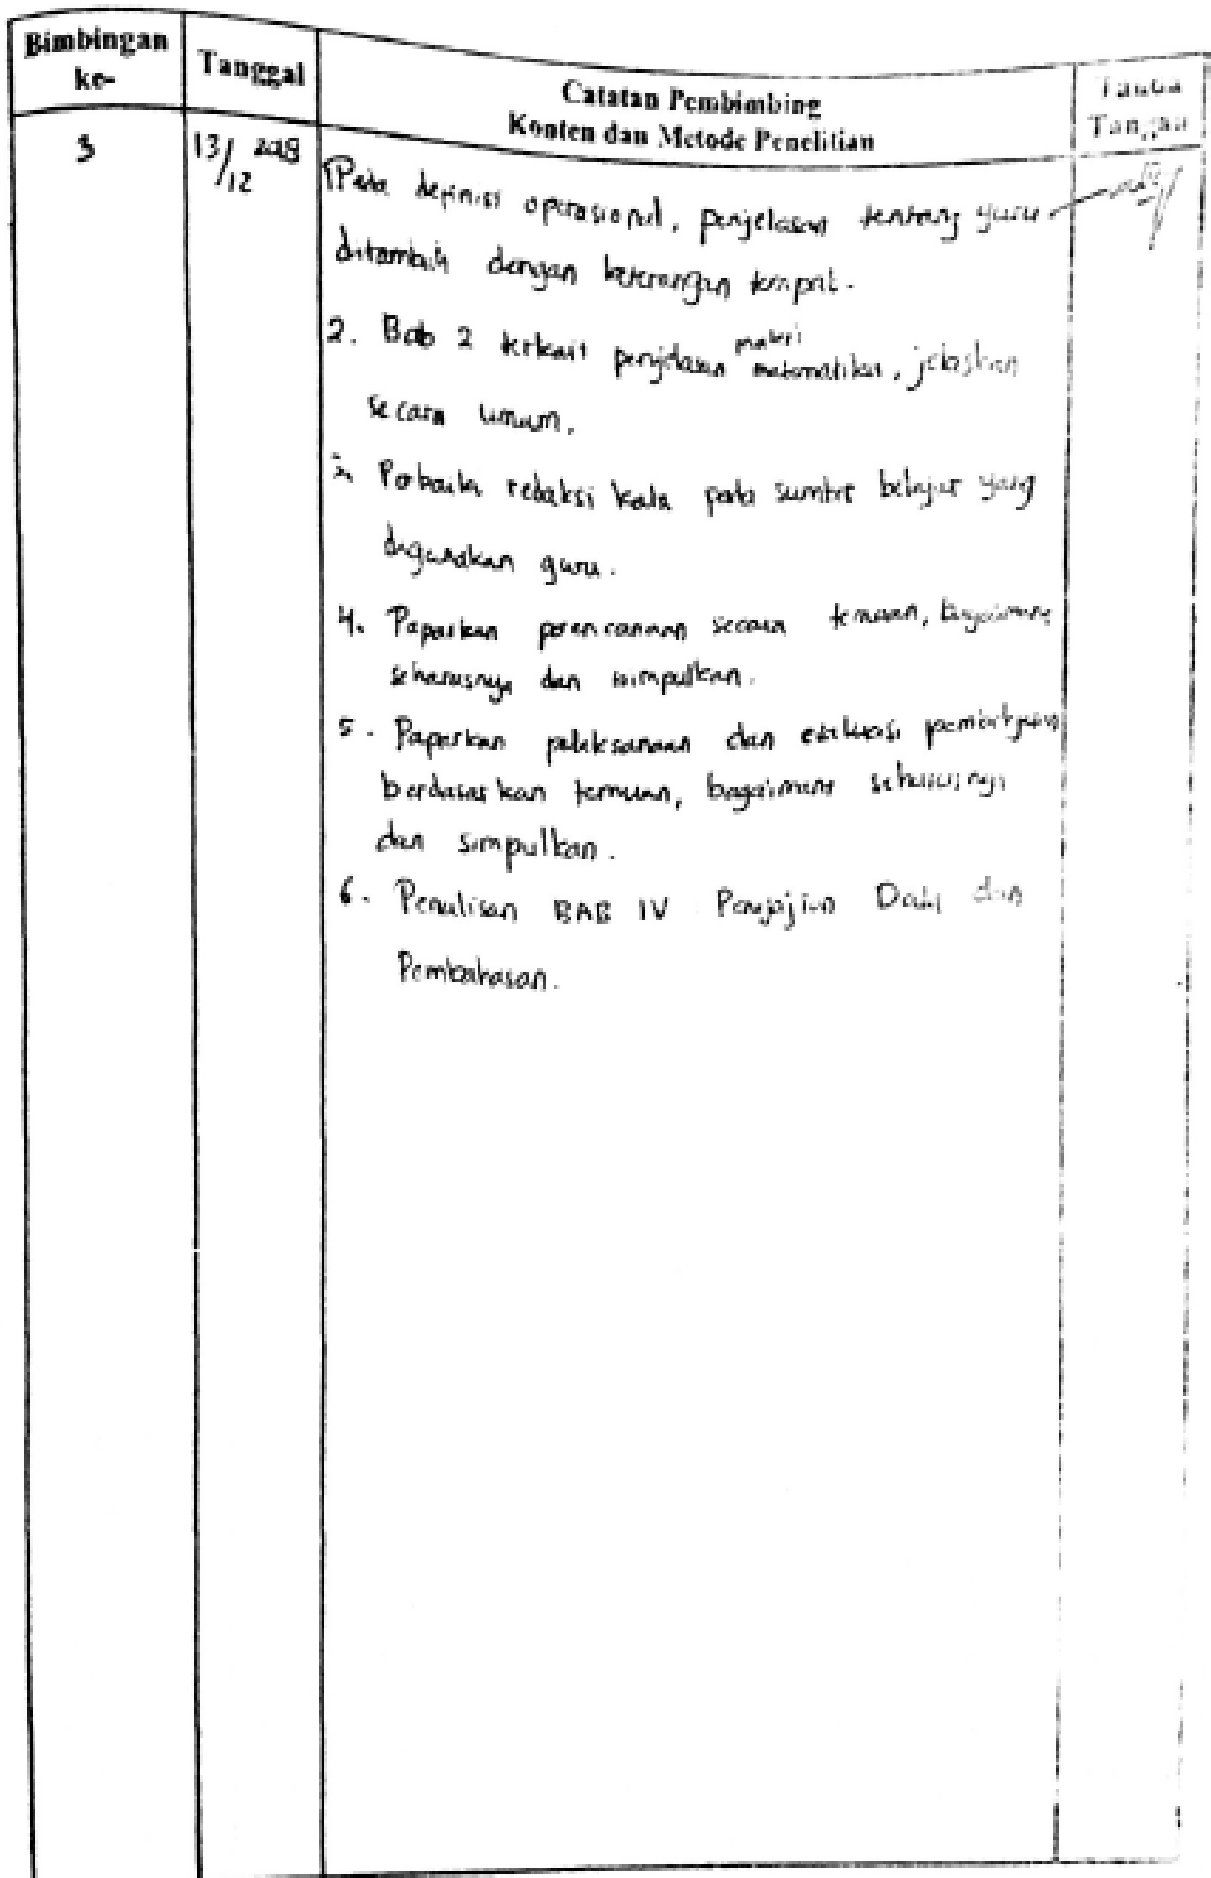 Bimbingan ke-
Tanggal
Catatan Pembimbing
Konten dan Metode Penelitian
Tanda
Tangan
3
13/12 2018
Pada definisi operasional, penjelasan tentang guru
ditambah dengan keterangan tempat.
2. Bab 2 terkait penjelasan materi matematika, jelaskan
secara umum.
3. Perbaiki redaksi kata pada sumber belajar yang
digunakan guru.
4. Paparkan perencanaan secara temuan, bagaimana
seharusnya dan simpulkan.
5. Paparkan pelaksanaan dan evaluasi pembelajaran
berdasarkan temuan, bagaimana seharusnya
dan simpulkan.
6. Penulisan BAB IV Penyajian Data dan
Pembahasan.